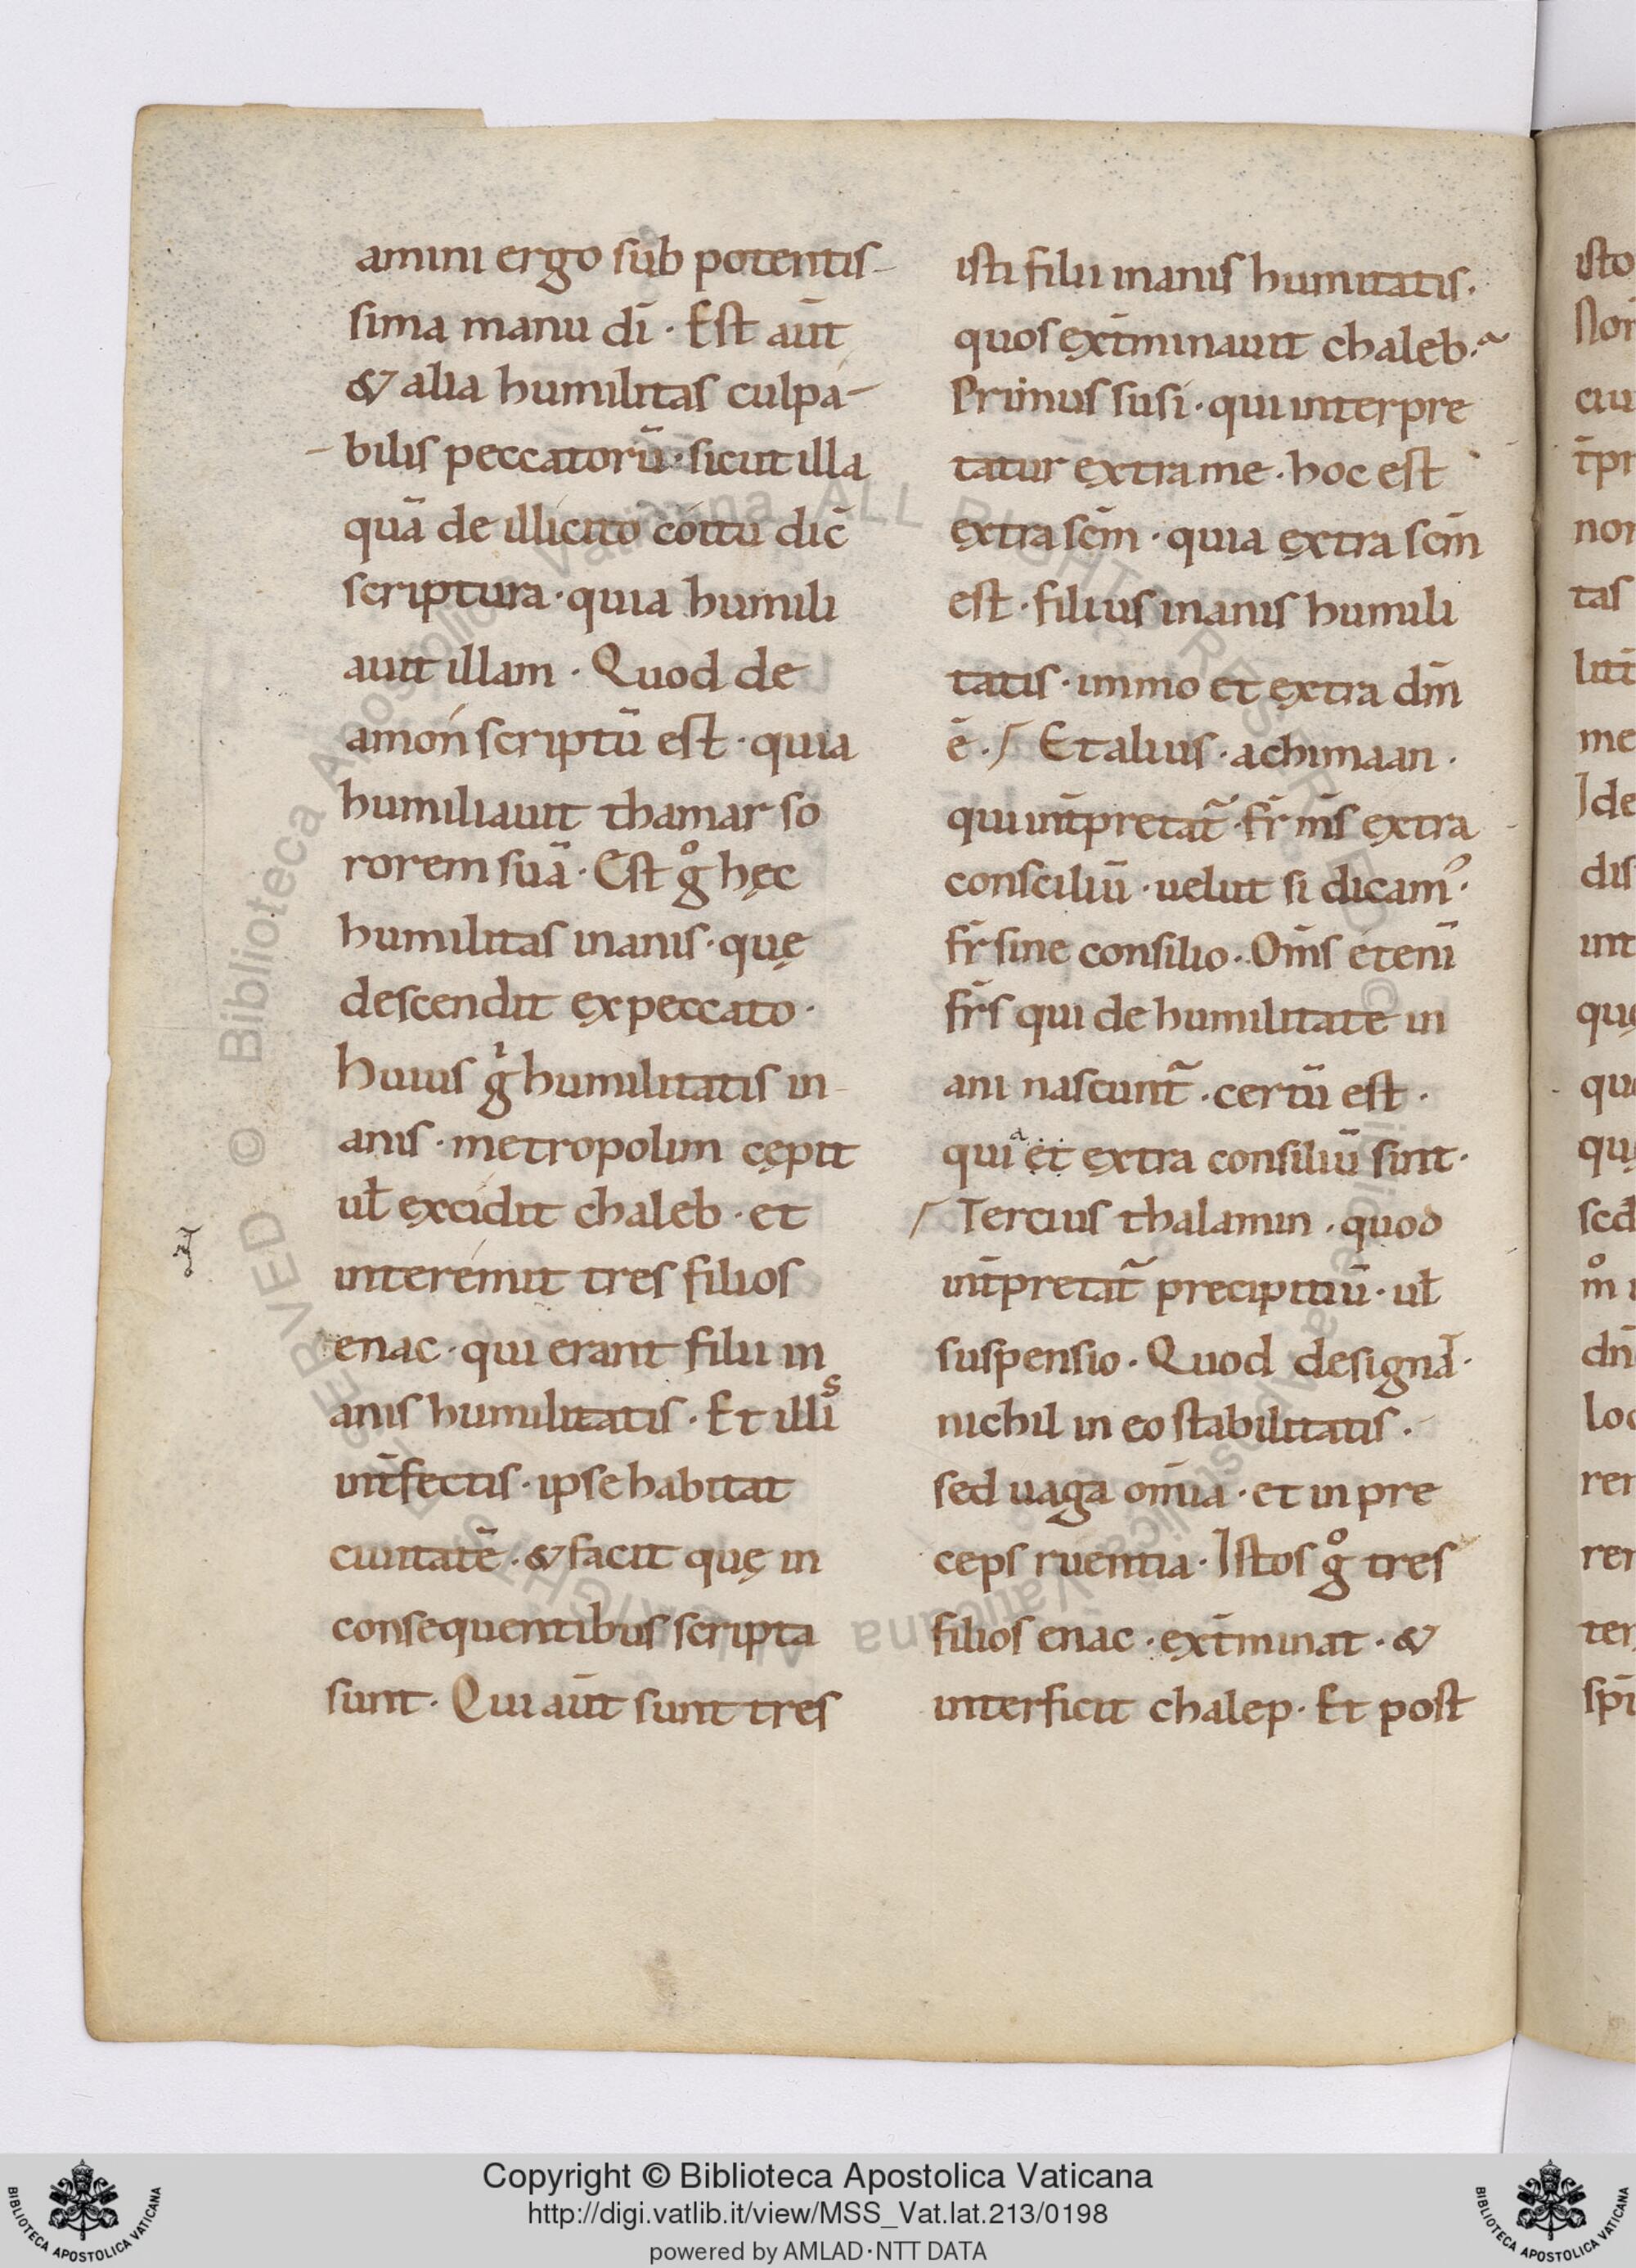 amini ergo sub potentis-
sima manu dī · Est aūt
& alia humilitas culpa-
bilis peccatorū · sicut illa
quā de illicito coitu dic̄
scriptura · quia humili
auit illam · Quod de
amon scriptū est · quia
humiliauit thamar so
rorem suā · Est gͦ hęc
humilitas inanis · quę
descendit ex peccato ·
huius gⁱ humilitatis in-
anis · metropolim cępit
ul̄ excidit chaleb · et
interemit tres filios
enac · qui erant filii in
anis humilitatis · Et illiˢ
int̄fectis · ipse habitat
ciuitatē · & facit quę in
consequentibus scripta
sunt · Qui aūt sunt tres
isti filii inanis humitatis ·
quos ext̄minauit chaleb ·
Primus susi · qui interpre
tatur extra me · hoc est
extra scm̄ · quia extra scm̄
est · filius inanis humili
tatis · immo et extra dm̄
ē · / Et alius · achimaan ·
qui int̄pretat̄ · fr̄ m̄s extra
consciliū · uelut si dicamꝰ ·
fr̄ sine consilio · Om̄s etenī
fr̄s qui de humilitate in
ani nascunt̄ · certū est ·
quiᵃ et extra consiliū sint ·
/ Tercius thalamin · quod
int̄pretat̄ precipitiū · ul̄
suspensio · Quod designat̄ ·
nichil in eo stabilitatis ·
sed uaga om̄ia · et in pre
ceps ruentia · Istos gͦ tres
filios enac · ext̄minat · &
interficit chalep · Et post
isto
ciu
t̄pr
non
tas
me
Ide
dis
int
quę
rer
rer
ter
Copyright © Biblioteca Apostolica Vaticana
http://digi.vatlib.it/view/MSS_Vat.lat.213/0198
powered by AMLAD·NTT DATA
BIBLIOTECA APOSTOLICA VATICANA
BIBLIOTECA APOSTOLICA VATICANA